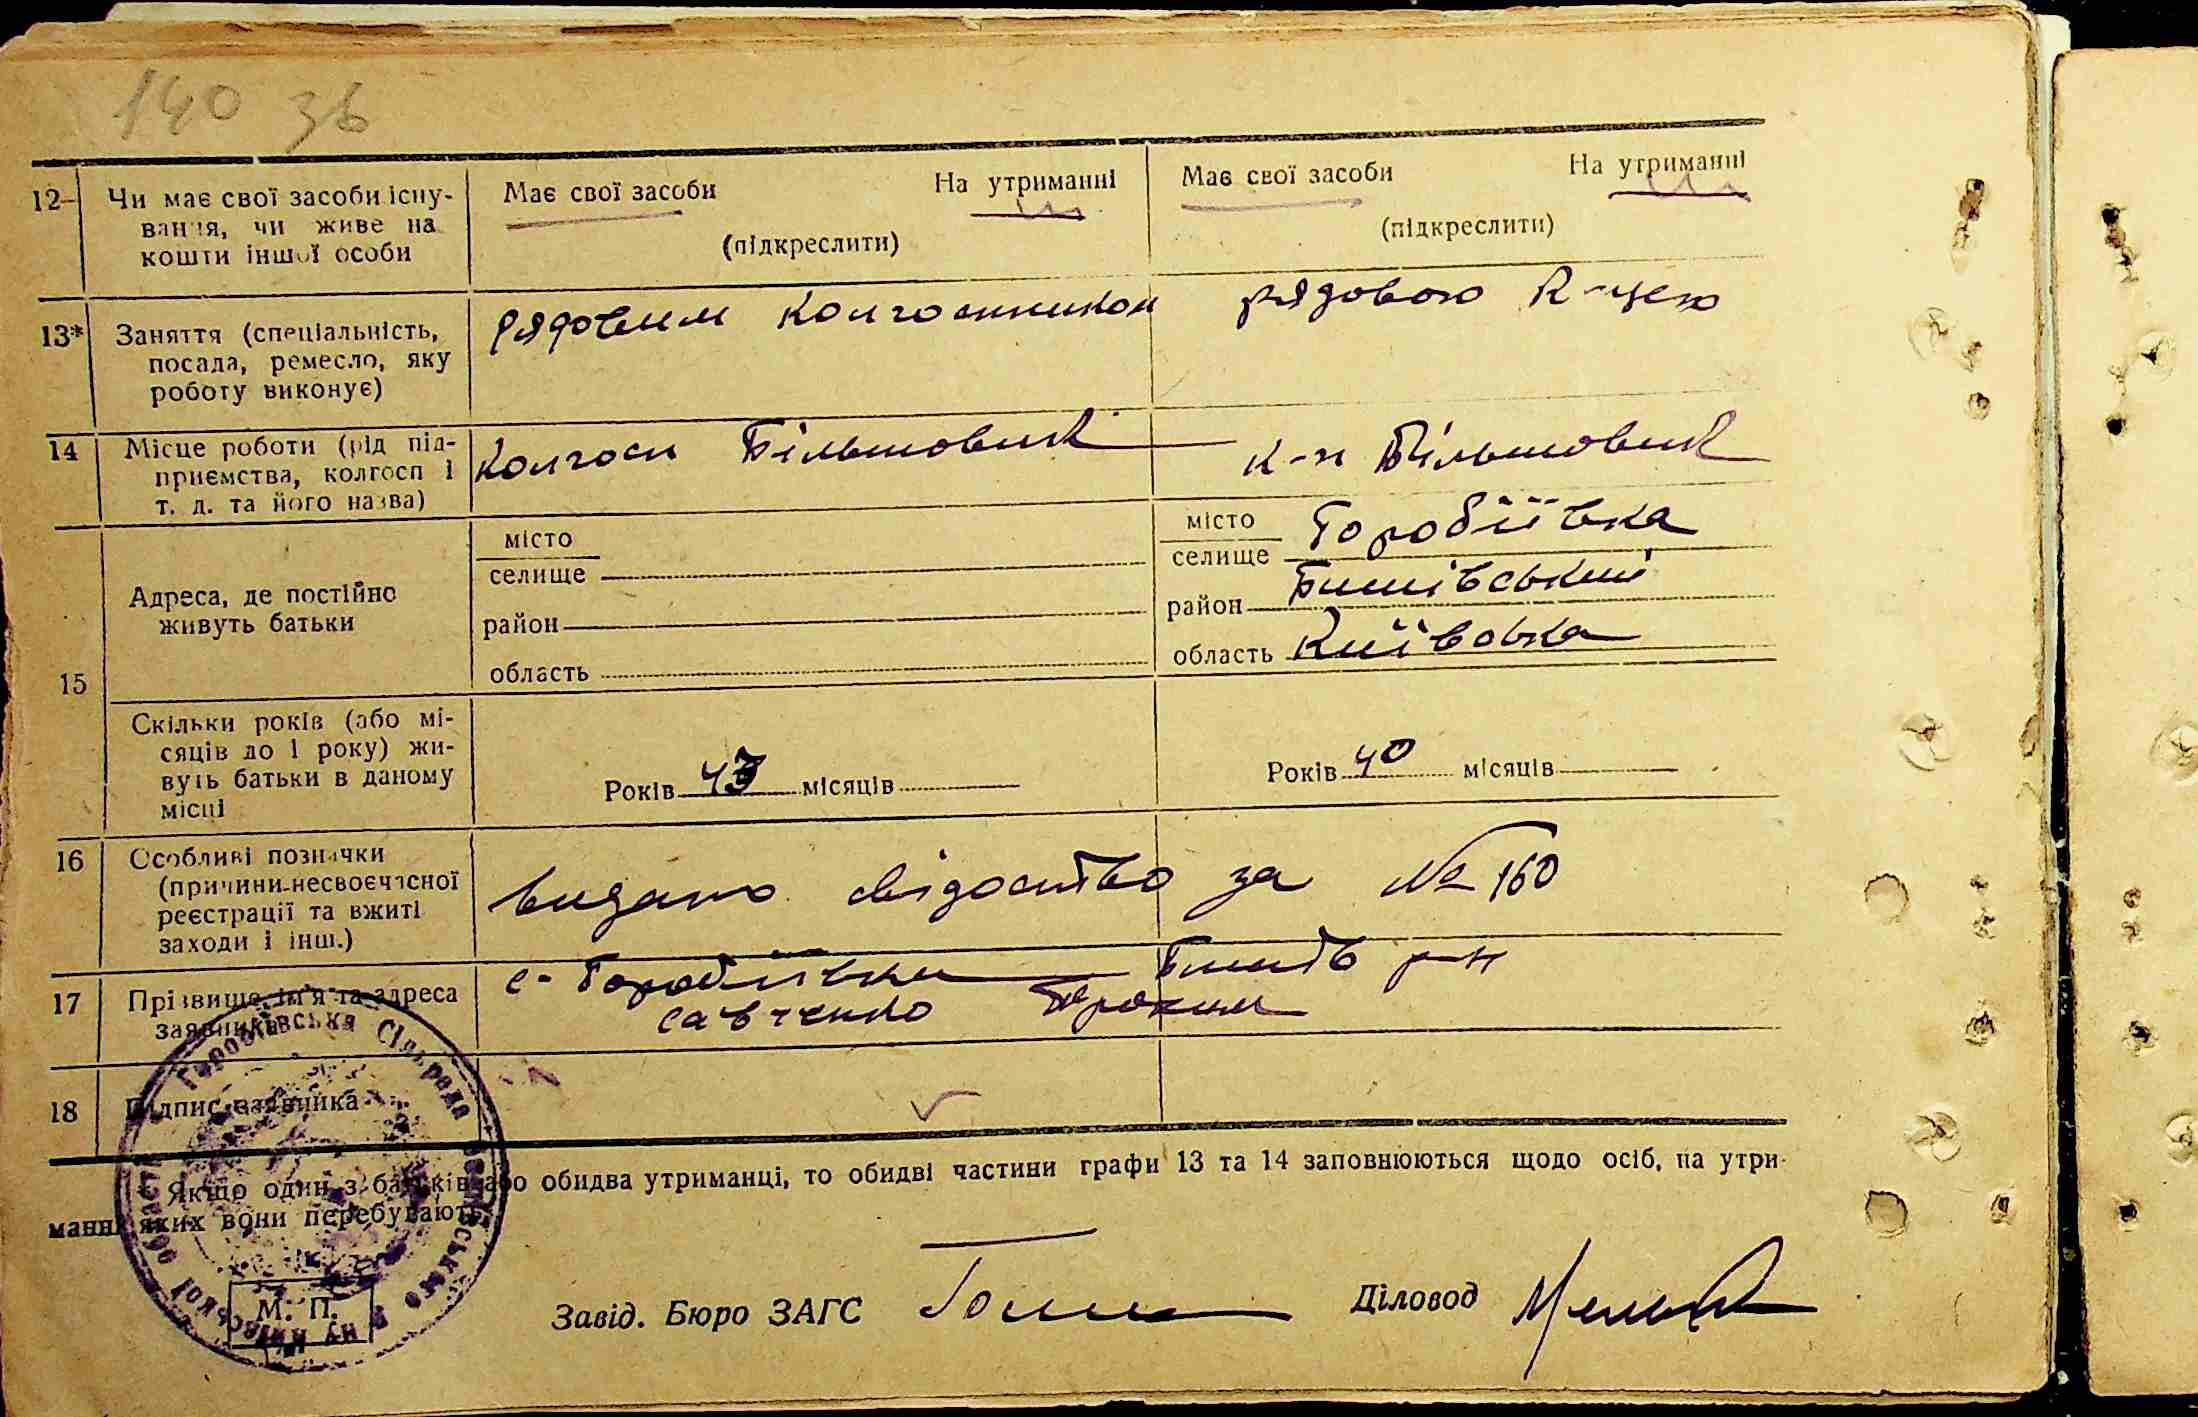 140 зв
12 Чи має свої засоби існу-
вання, чи живе на
кошти іншої особи
Має свої засоби На утриманні
(підкреслити)
Має свої засоби На утриманні
(підкреслити)
13* Заняття (спеціальність,
посада, ремесло, яку
роботу виконує)
рядовим колгоспником
рядовою к-цею
14 Місце роботи (рід під-
приємства, колгосп і
т. д. та його назва)
колгосп Більшовик
к-п Більшовик
15
Адреса, де постійно
живуть батьки
місто
селище
район
область
місто
селище Горобіївка
район Бишівський
область Київська
Скільки років (або мі-
сяців до 1 року) жи-
вуть батьки в даному
місці
Років 43 місяців
Років 40 місяців
16 Особливі позначки
(причини несвоєчасної
реєстрації та вжиті
заходи і інш.)
видано свідоцтво за № 160
17 Прізвище, ім'я та адреса
заявників
с. Горобіївка Бишів р-н
Савченко
18 Підпис заявника
* Якщо один з батьків або обидва утриманці, то обидві частини графи 13 та 14 заповнюються щодо осіб, на утри-
манні яких вони перебувають.
Горобіївська Сільрада
Київської області
М. П.
Завід. Бюро ЗАГС
Діловод